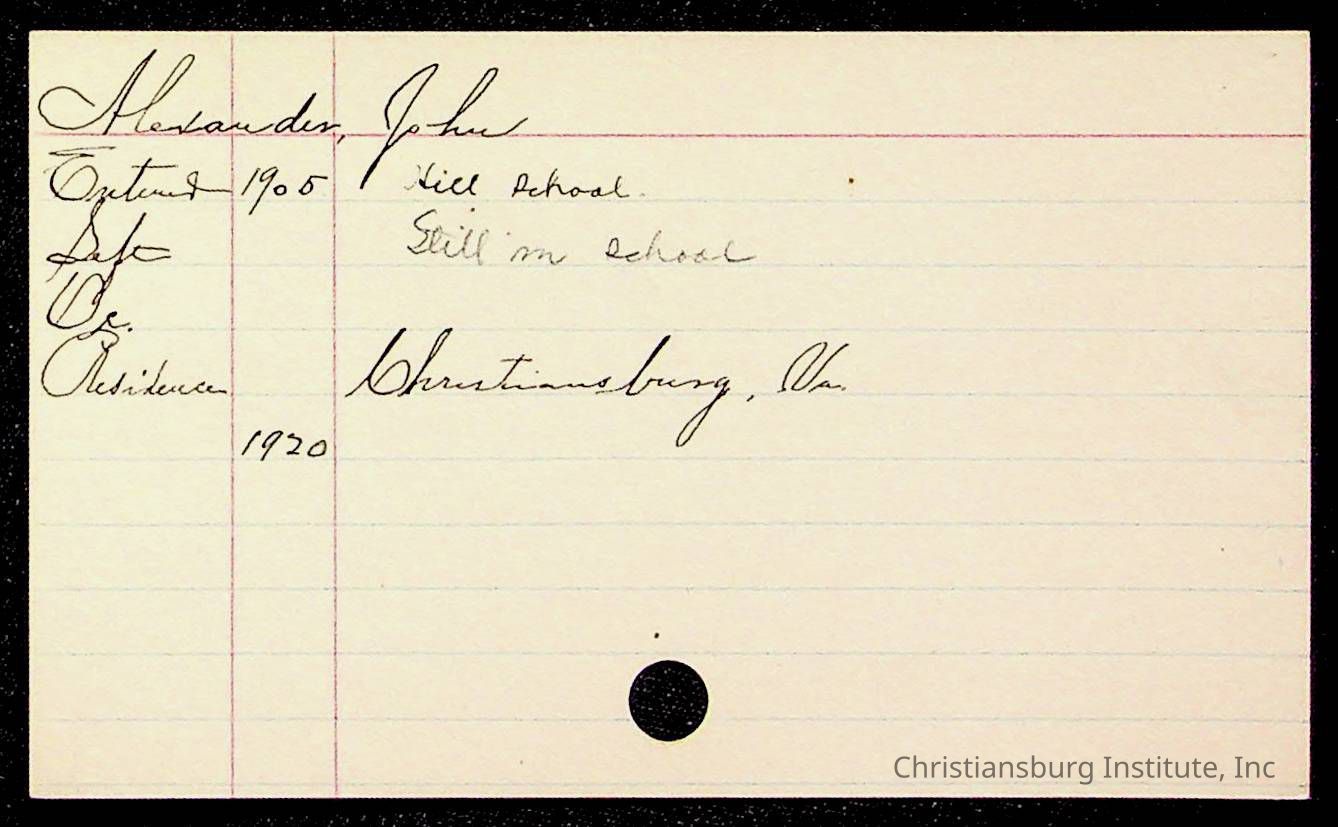 Alexander, John
Entered 1905 Hill School
Left Still in School
Oc.
Residence Christiansburg, Va.
1920
Christiansburg Institute, Inc